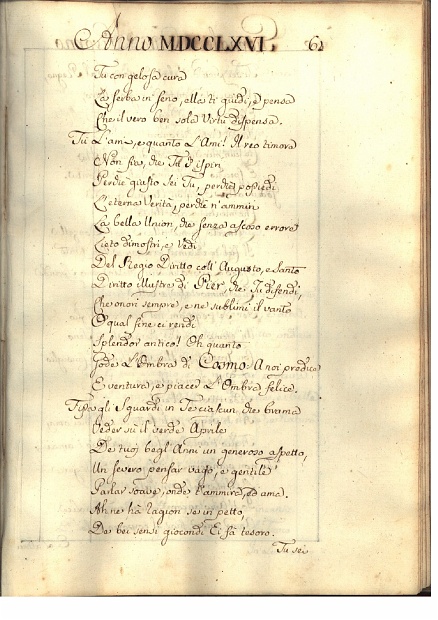 Anno MDCCLXVI. 61
Tu con gelosa cura
La serba in seno, ella ti guidi, e pensa
Che il vero ben sola Virtù dispensa.
Tu L'ami, e quanto L'Ami! Il reo timore
Non fia, che
Perchè giusto sei Tu, perchè possiedi
L'eterna Verità, perchè n'ammiri
La bella Union, che senza ascoso errore
Lieto dimostri, e vedi
Del Regio Diritto coll' Augusto, e Santo
Diritto illustre di Pier, che Tu difendi,
Che onori sempre, e ne sublimi il vanto
O qual fine ci rendi
Splendor antico! Oh quanto
Gode L'Ombra di Cosmo: A noi predice
E ventura, e piacer L'Ombra felice.
gli Sguardi in Te ciascun, che brama
Veder sù il verde Aprile
De tuoj begl' Anni un generoso aspetto,
Un severo pensar vago, e gentile
Parlar soave, onde t'ammira, ed ama.
Ah ne hà ragion se in petto,
De bei sensi giocondi Ei fà tesoro.
Tu sei